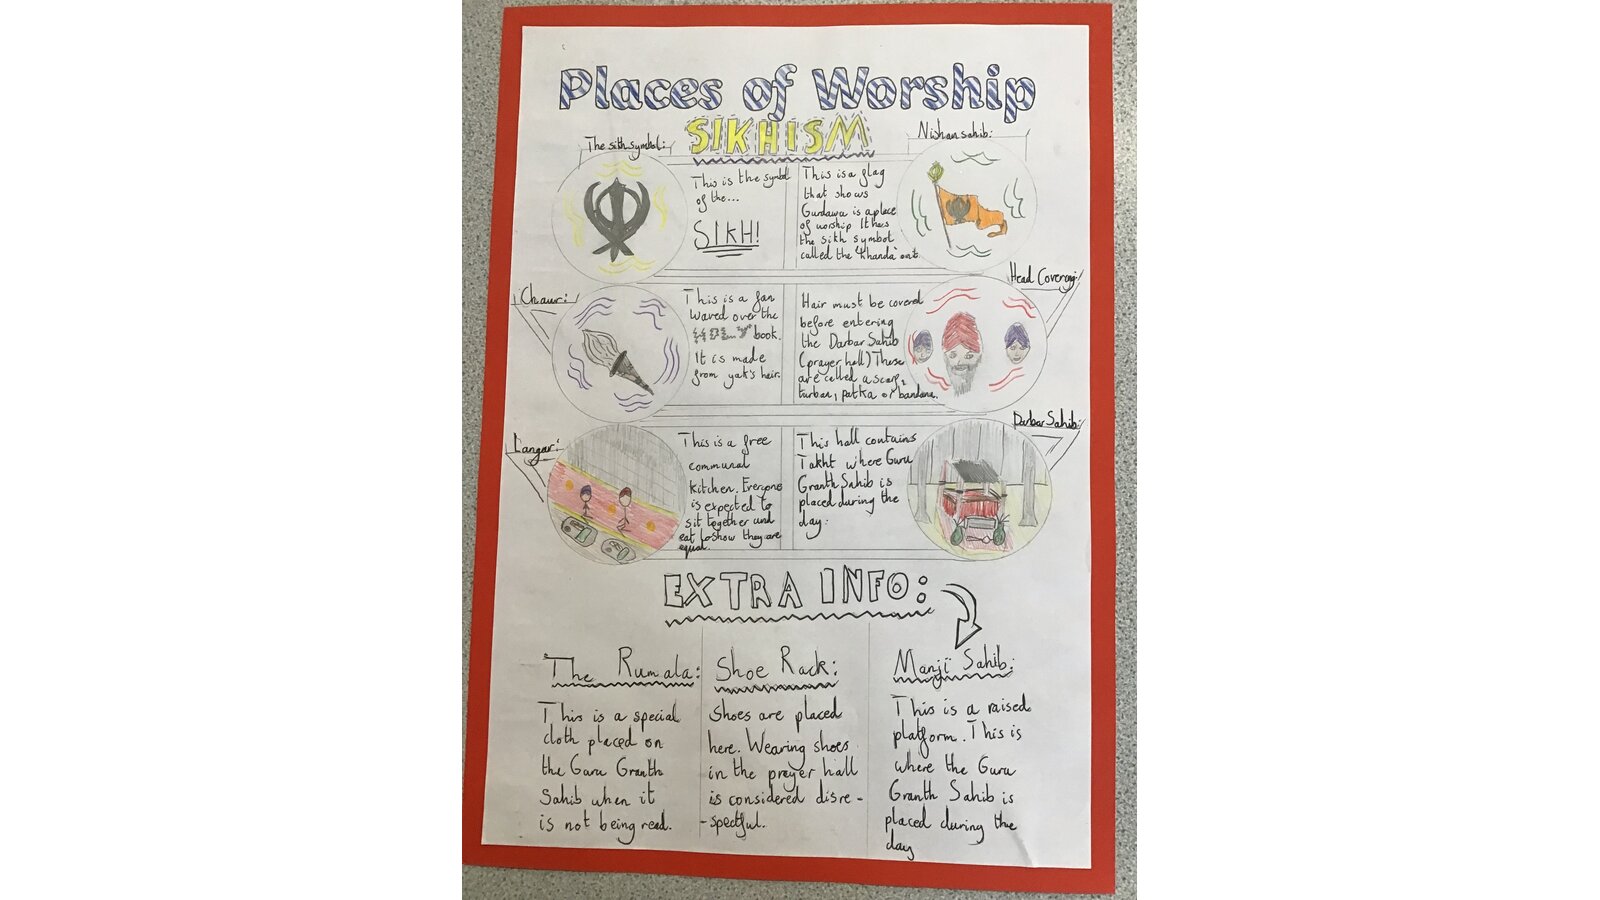 Places of Worship
SIKHISM
The sikh symbol:
This is the symbol
of the...
SIKH!
Nishan sahib:
This is a flag
that shows
Gurdawa is a place
of worship It has
the sikh symbol
called the 'Khanda' on it.
Chaur:
This is a fan
waved over the
HOLY book.
It is made
from yak's hair.
Head Covering:
Hair must be covered
before entering
the Darbar Sahib
(prayer hall) These
are called a scarf,
turban, patka or bandana.
Langar:
This is a free
communal
kitchen. Everyone
is expected to
sit together and
eat to show they are
equal.
Darbar Sahib:
This hall contains
Takht where Guru
Granth Sahib is
placed during the
day.
EXTRA INFO:
The Rumala:
This is a special
cloth placed on
the Guru Granth
Sahib when it
is not being read.
Shoe Rack:
Shoes are placed
here. Wearing shoes
in the prayer hall
is considered disre-
-spectful.
Manji Sahib:
This is a raised
platform. This is
where the Guru
Granth Sahib is
placed during the
day